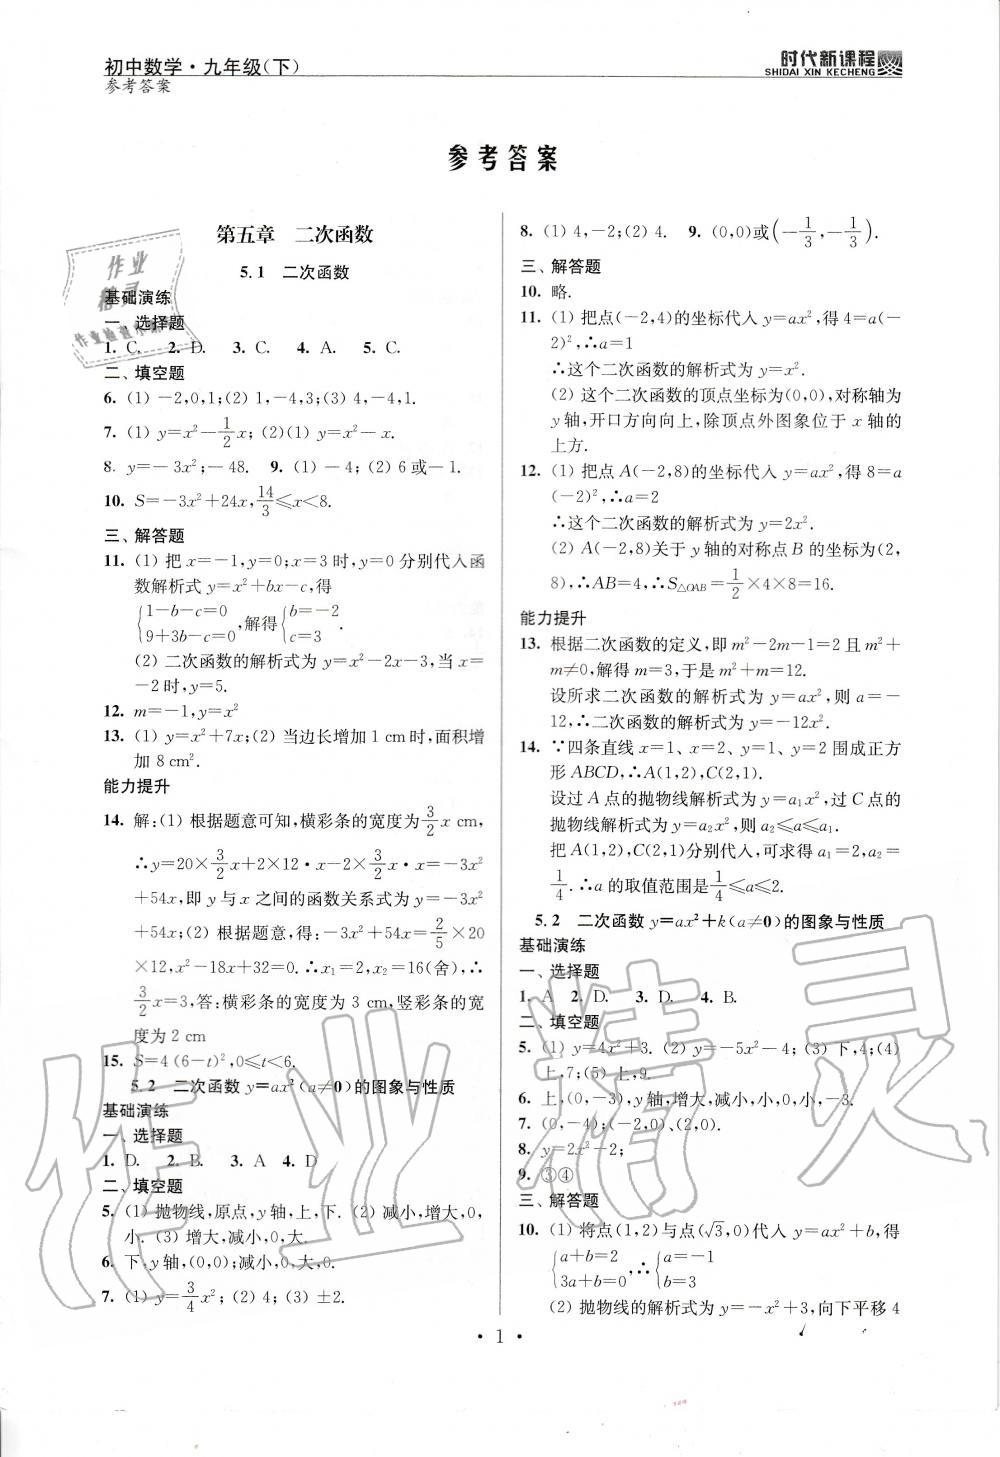 初中数学·九年级(下)
参考答案
时代新课程
SHIDAI XIN KECHENG
参考答案
第五章 二次函数
5.1 二次函数
基础演练
一、选择题
1. C. 2. D. 3. C. 4. A. 5. C.
二、填空题
6. (1) -2,0,1;(2) 1,-4,3;(3) 4,-4,1.
7. (1) y=x²-1/2x;(2)(1) y=x²-x.
8. y=-3x²;-48. 9. (1) -4;(2) 6或-1.
10. S=-3x²+24x,14/3≤x<8.
三、解答题
11. (1) 把 x=-1,y=0;x=3时,y=0分别代入函
数解析式 y=x²+bx-c,得
{1-b-c=0 9+3b-c=0,解得{b=-2 c=3.
(2) 二次函数的解析式为 y=x²-2x-3,当 x=
-2时,y=5.
12. m=-1,y=x²
13. (1) y=x²+7x;(2) 当边长增加1 cm时,面积增
加8 cm².
能力提升
14. 解:(1) 根据题意可知,横彩条的宽度为3/2x cm,
∴y=20×3/2x+2×12·x-2×3/2x·x=-3x²
+54x,即 y 与 x 之间的函数关系式为 y=-3x²
+54x;(2) 根据题意,得:-3x²+54x=2/5×20
×12,x²-18x+32=0.∴x₁=2,x₂=16(舍),∴
3/2x=3,答:横彩条的宽度为3 cm,竖彩条的宽
度为2 cm
15. S=4(6-t)²,0≤t<6.
5.2 二次函数 y=ax²(a≠0)的图象与性质
基础演练
一、选择题
1. D. 2. B. 3. A 4. D
二、填空题
5. (1) 抛物线,原点,y轴,上,下. (2) 减小,增大,0,
小. (3) 增大,减小,0,大.
6. 下,y轴,(0,0);减小,0,大,0.
7. (1) y=3/4x²;(2) 4;(3) ±2.
8. (1) 4,-2;(2) 4. 9. (0,0)或(-1/3,-1/3).
三、解答题
10. 略.
11. (1) 把点(-2,4)的坐标代入 y=ax²,得4=a(-
2)²,∴a=1
∴这个二次函数的解析式为 y=x².
(2) 这个二次函数的顶点坐标为(0,0),对称轴为
y轴,开口方向向上,除顶点外图象位于 x 轴的
上方.
12. (1) 把点 A(-2,8)的坐标代入 y=ax²,得8=a
(-2)²,∴a=2
∴这个二次函数的解析式为 y=2x².
(2) A(-2,8)关于 y轴的对称点 B 的坐标为(2,
8),∴AB=4,∴S△OAB=1/2×4×8=16.
能力提升
13. 根据二次函数的定义,即 m²-2m-1=2且 m²+
m≠0,解得 m=3,于是 m²+m=12.
设所求二次函数的解析式为 y=ax²,则 a=-
12,∴二次函数的解析式为 y=-12x².
14. ∵四条直线 x=1、x=2、y=1、y=2围成正方
形 ABCD,∴A(1,2),C(2,1).
设过 A 点的抛物线解析式为 y=a₁x²,过 C 点的
抛物线解析式为 y=a₂x²,则 a₂≤a≤a₁.
把 A(1,2),C(2,1)分别代入,可求得 a₁=2,a₂=
1/4.∴a 的取值范围是1/4≤a≤2.
5.2 二次函数 y=ax²+k(a≠0)的图象与性质
基础演练
一、选择题
1. A 2. D. 3. D. 4. B.
二、填空题
5. (1) y=4x²+3. (2) y=-5x²-4;(3) 下,4;(4)
上,7;(5) 上,9.
6. 上,(0,-3),y轴,增大,减小,小,0,小,-3.
7. (0,-4);(-2,0)、(2,0).
8. y=2x²-2;
9. ③④
三、解答题
10. (1) 将点(1,2)与点(√3,0)代入 y=ax²+b,得
{a+b=2 3a+b=0,∴{a=-1 b=3
(2) 抛物线的解析式为 y=-x²+3,向下平移4
· 1 ·
作业精灵